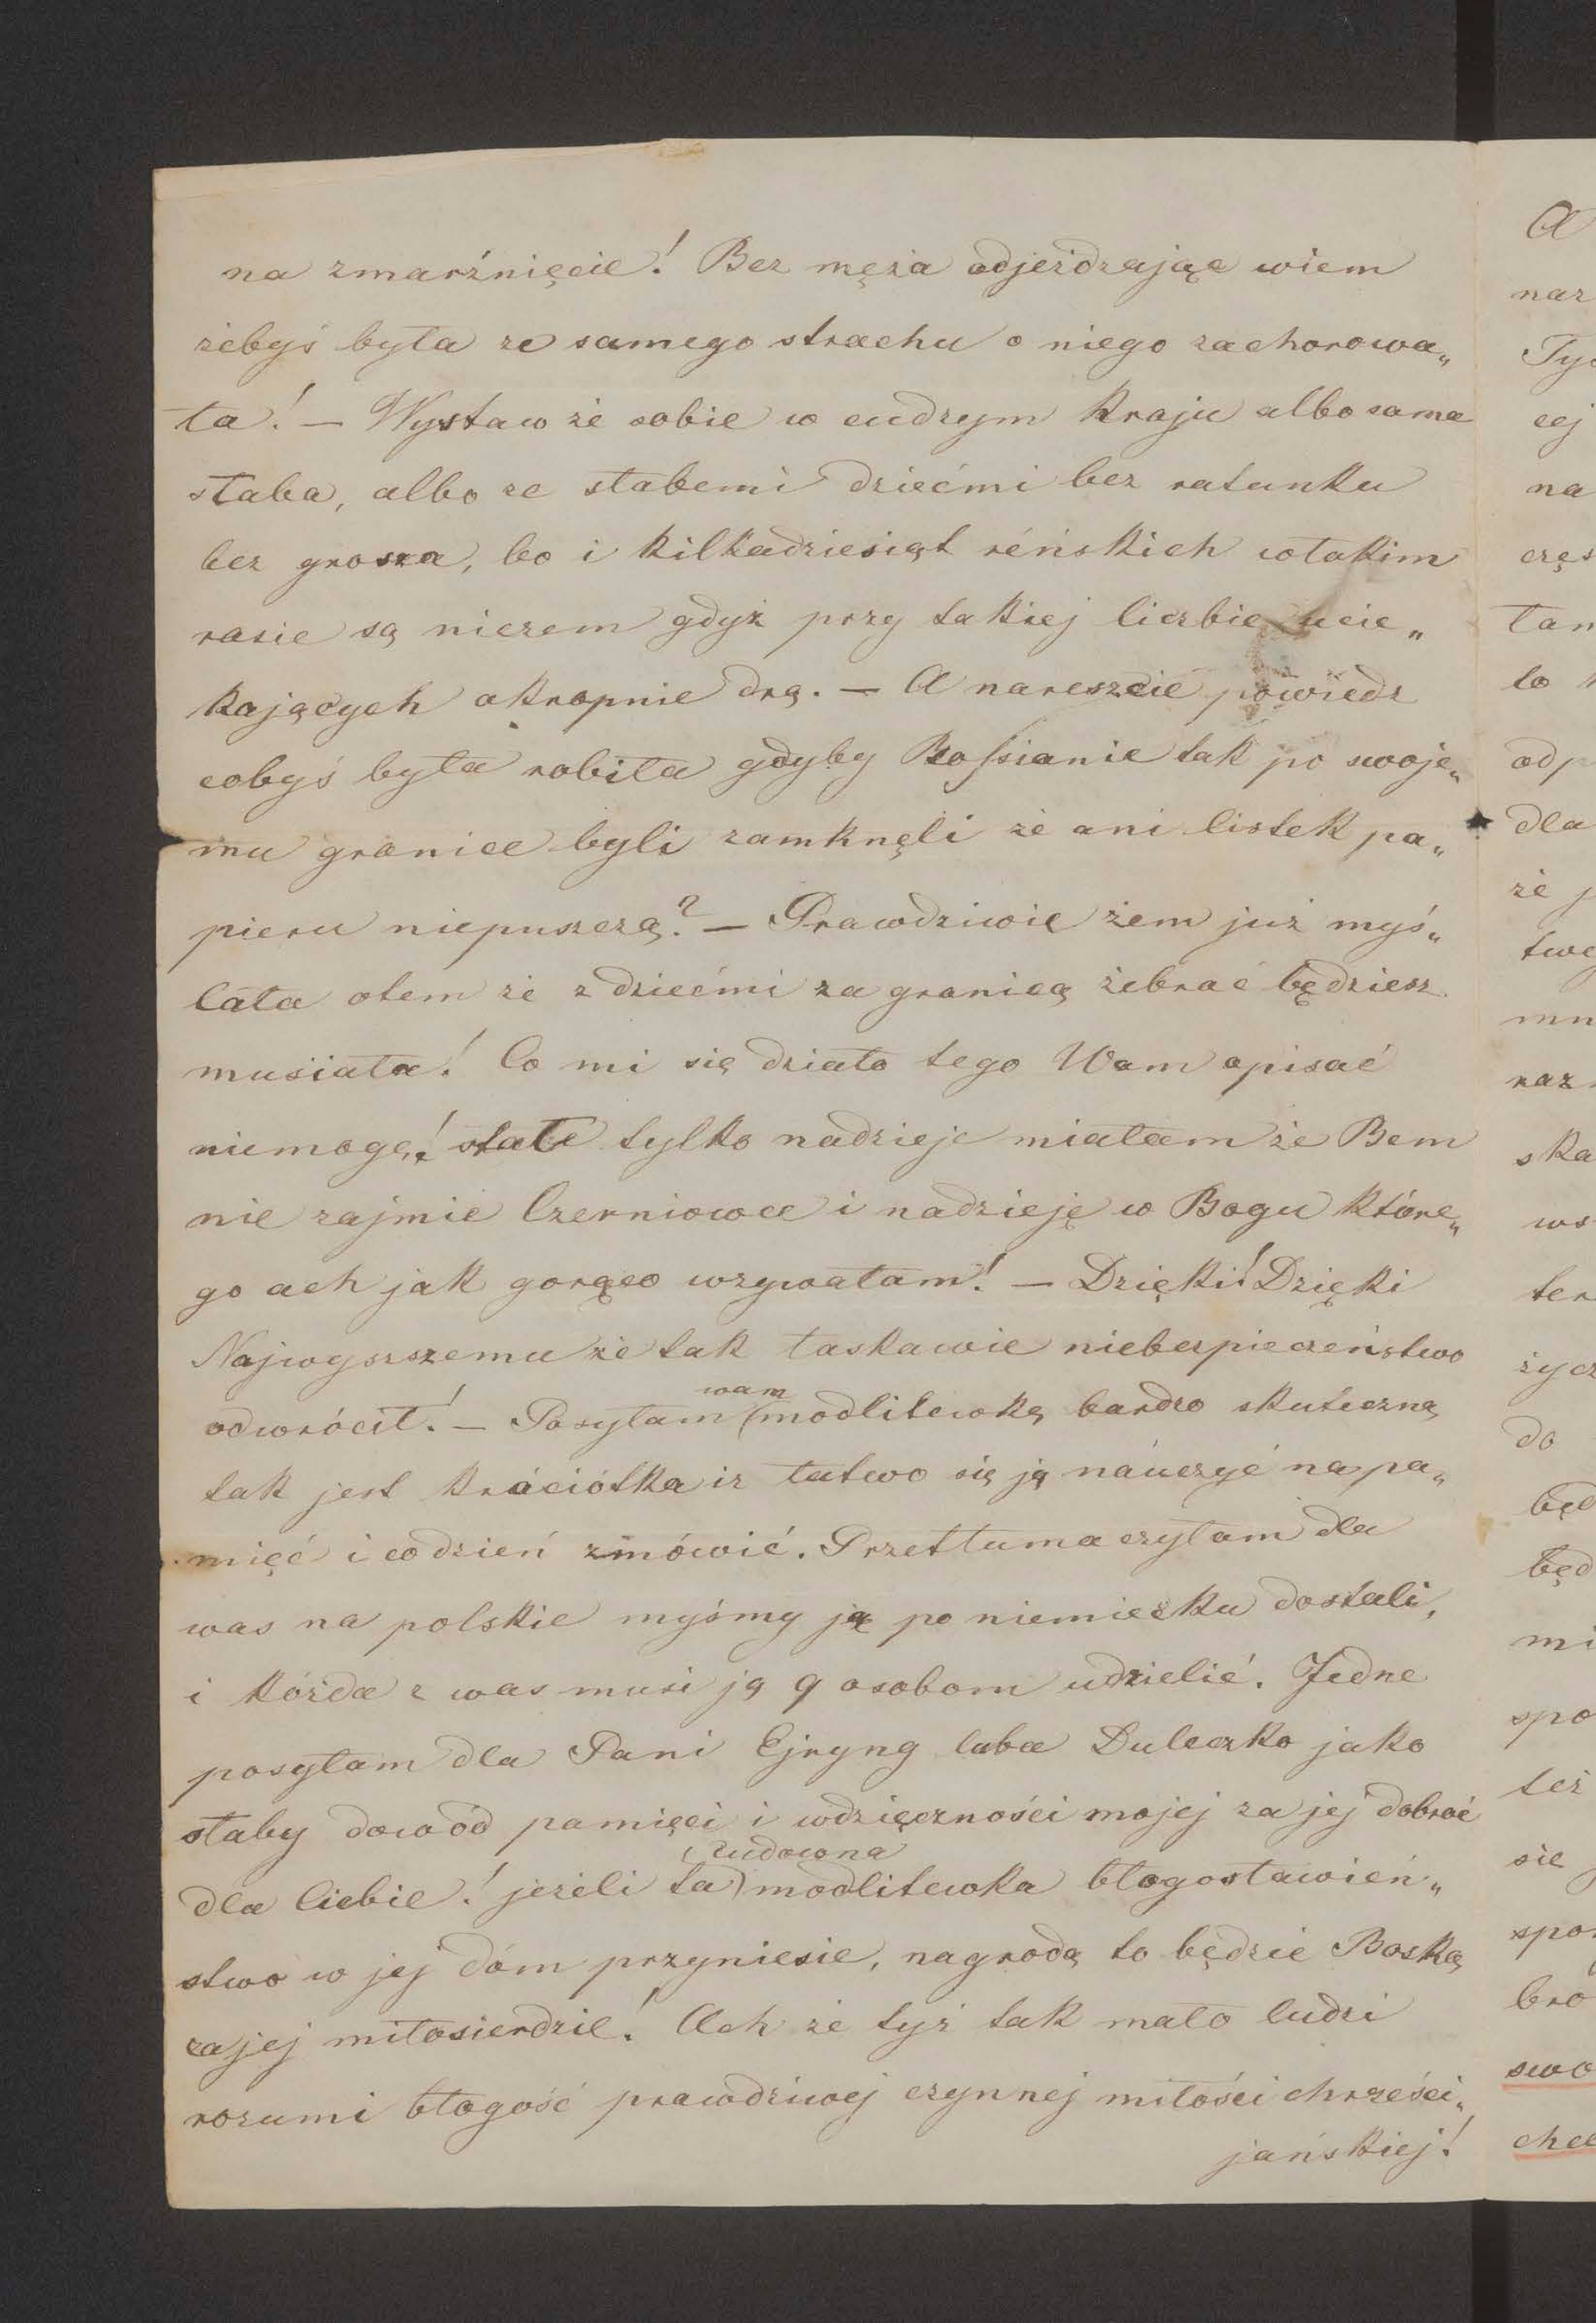 na zmarźnięcie! Bez męża odjeżdzając wiem
żebyś była ze samego strachu o niego zachorowa„
ła! — Wystaw że sobie w cudzym kraju albo sama
słaba, albo ze słabemi dziećmi bez ratunku
bez grosza, bo i kilkadziesiąt reńskich w takim
rasie są niczem gdyż przy takiej liczbie ucie„
kających okropnie drą. — A nareszcie powiedz
cobyś była robiła gdyby Rossianie tak po swoje„
mu granice byli zamknęli że ani listek pa„
pieru niepuszczą? — Prawdziwie żem już myś„
lała otem że z dziećmi za granicą żebrać będziesz
musiała! Co mi się działo tego Wam opisać
niemogę! stałe tylko nadzieje miałam że Bem
nie zajmie Czerniowce i nadzieję w Bogu które„
go ach jak gorąco wzywałam! — Dzięki! Dzięki
Najwyszszemu że tak łaskawie niebezpieczeństwo
odwrócił! — Posyłam wam modlitewkę bardzo skuteczną
tak jest króciótka iz łatwo się ją náuczyć na pa„
mięć i codzień zmówić. Przetłumaczyłam dla
was na polskie myśmy ją po niemiecku dostali,
i kóżda z was musi ją 9 osobom udzielić. Jedne
posyłam dla Pani Ejryng luba Duleczko jako
słaby dowód pamięci i wdzięczności mojej za jej dobroć
dla Ciebie! jeżeli ta cudowna modlitewka błogosławień„
stwo w jej dóm przyniesie, nagrodą to będzie Boską
za jej miłosierdzie! Ach że tyż tak mało ludzi
rozumi błogość prawdziwej czynnej miłości chrześci„
jańskiej!
A
naz
Tyc
cej
na
częs
tam
to
odp
dla
że j
twe
mn
raz
ska
ws
ter
życz
do
będ
będ
mi
spo
też
sie
spo
bro
swo
chce